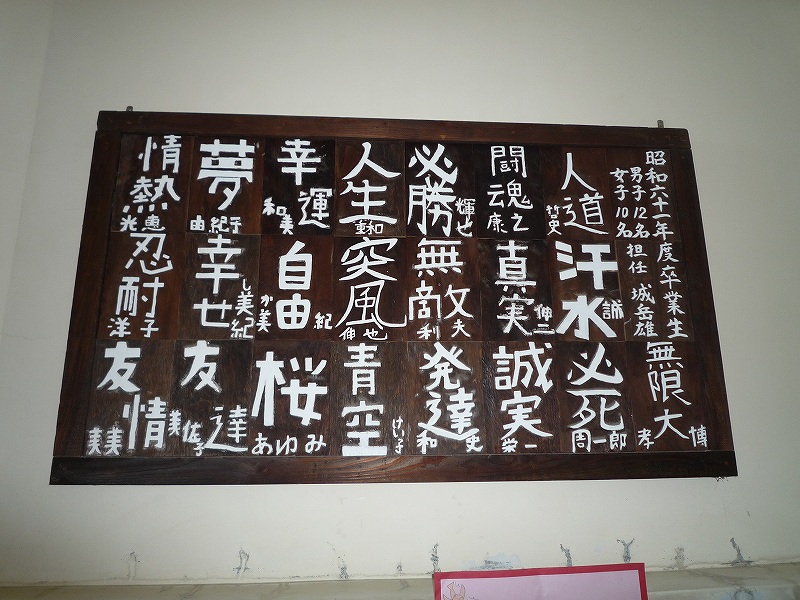 昭和六十一年度卒業生
男子12名
女子10名
担任 城岳雄
無限大
孝博
人道
哲史
汗水
誠
必死
周一郎
闘魂
康之
真実
伸二
誠実
栄一
必勝
輝也
無敵
利夫
発達
和史
人生
重和
突風
伸也
青空
けい子
幸運
和美
自由
か美
紀
桜
あゆみ
夢
由紀子
幸せ
美紀
友達
佐子
情熱
光恵
忍耐
洋子
友情